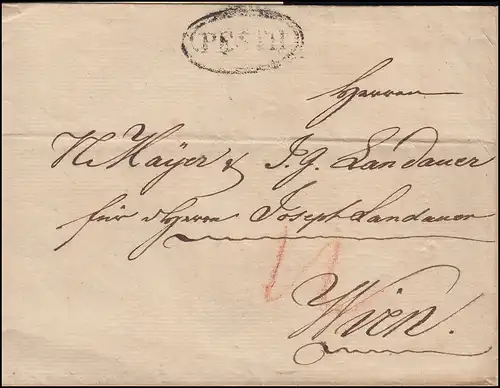 PESTH
Herren
N. Mayer & J. G. Landauer
für Herrn Joseph Landauer
Wien.